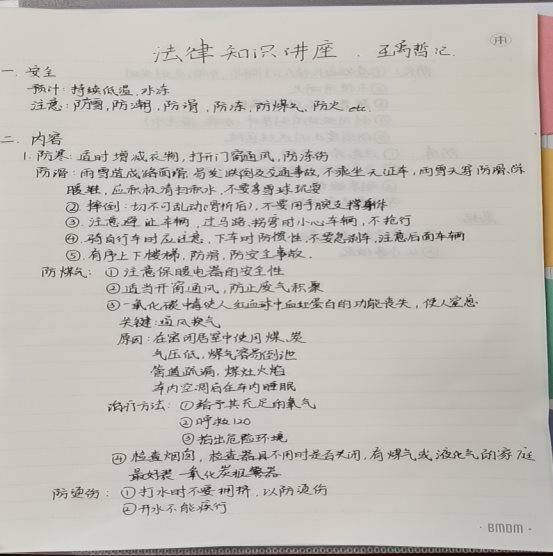 法律知识讲座.
一、安全
预计:持续低温、冰冻
注意:防雪,防潮,防滑,防冻,防煤气,防火 etc.
二、内容
1.防寒:适时增减衣物,打开门窗通风,防冻伤
防滑:雨雪造成路面滑 易发跌倒及交通事故,不乘坐无证车,雨雪天穿防滑、保
暖鞋,应积极清扫积水,不要拿雪球玩耍
② 摔倒:切不可乱动(骨折后),不要用手腕支撑
③.注意避让车辆,过马路、拐弯时小心车辆,不抢行
④.骑自行车时应注意,下车时防惯性,不要急刹车,注意后面车辆
⑤.有序上下楼梯,防滑,防安全事故.
防煤气:①注意保暖电器的安全性
②适当开窗通风,防止废气积聚
③一氧化碳中毒使人红血球中血红蛋白的功能丧失,使人窒息
关键:通风换气
原因:在密闭居室中使用煤、炭
气压低,煤气容易倒
管道疏漏,煤灶火焰
车内空调后在车内睡眠
治疗方法:①给予其充足的氧气
②呼救120
③抬出危险环境
④检查烟囱,检查器具不用时是否关闭,有煤气或液化气的家庭
最好装一氧化炭报警器
防烫伤:①打水时不要拥挤,以防烫伤
②开水不能疾行
BMDM